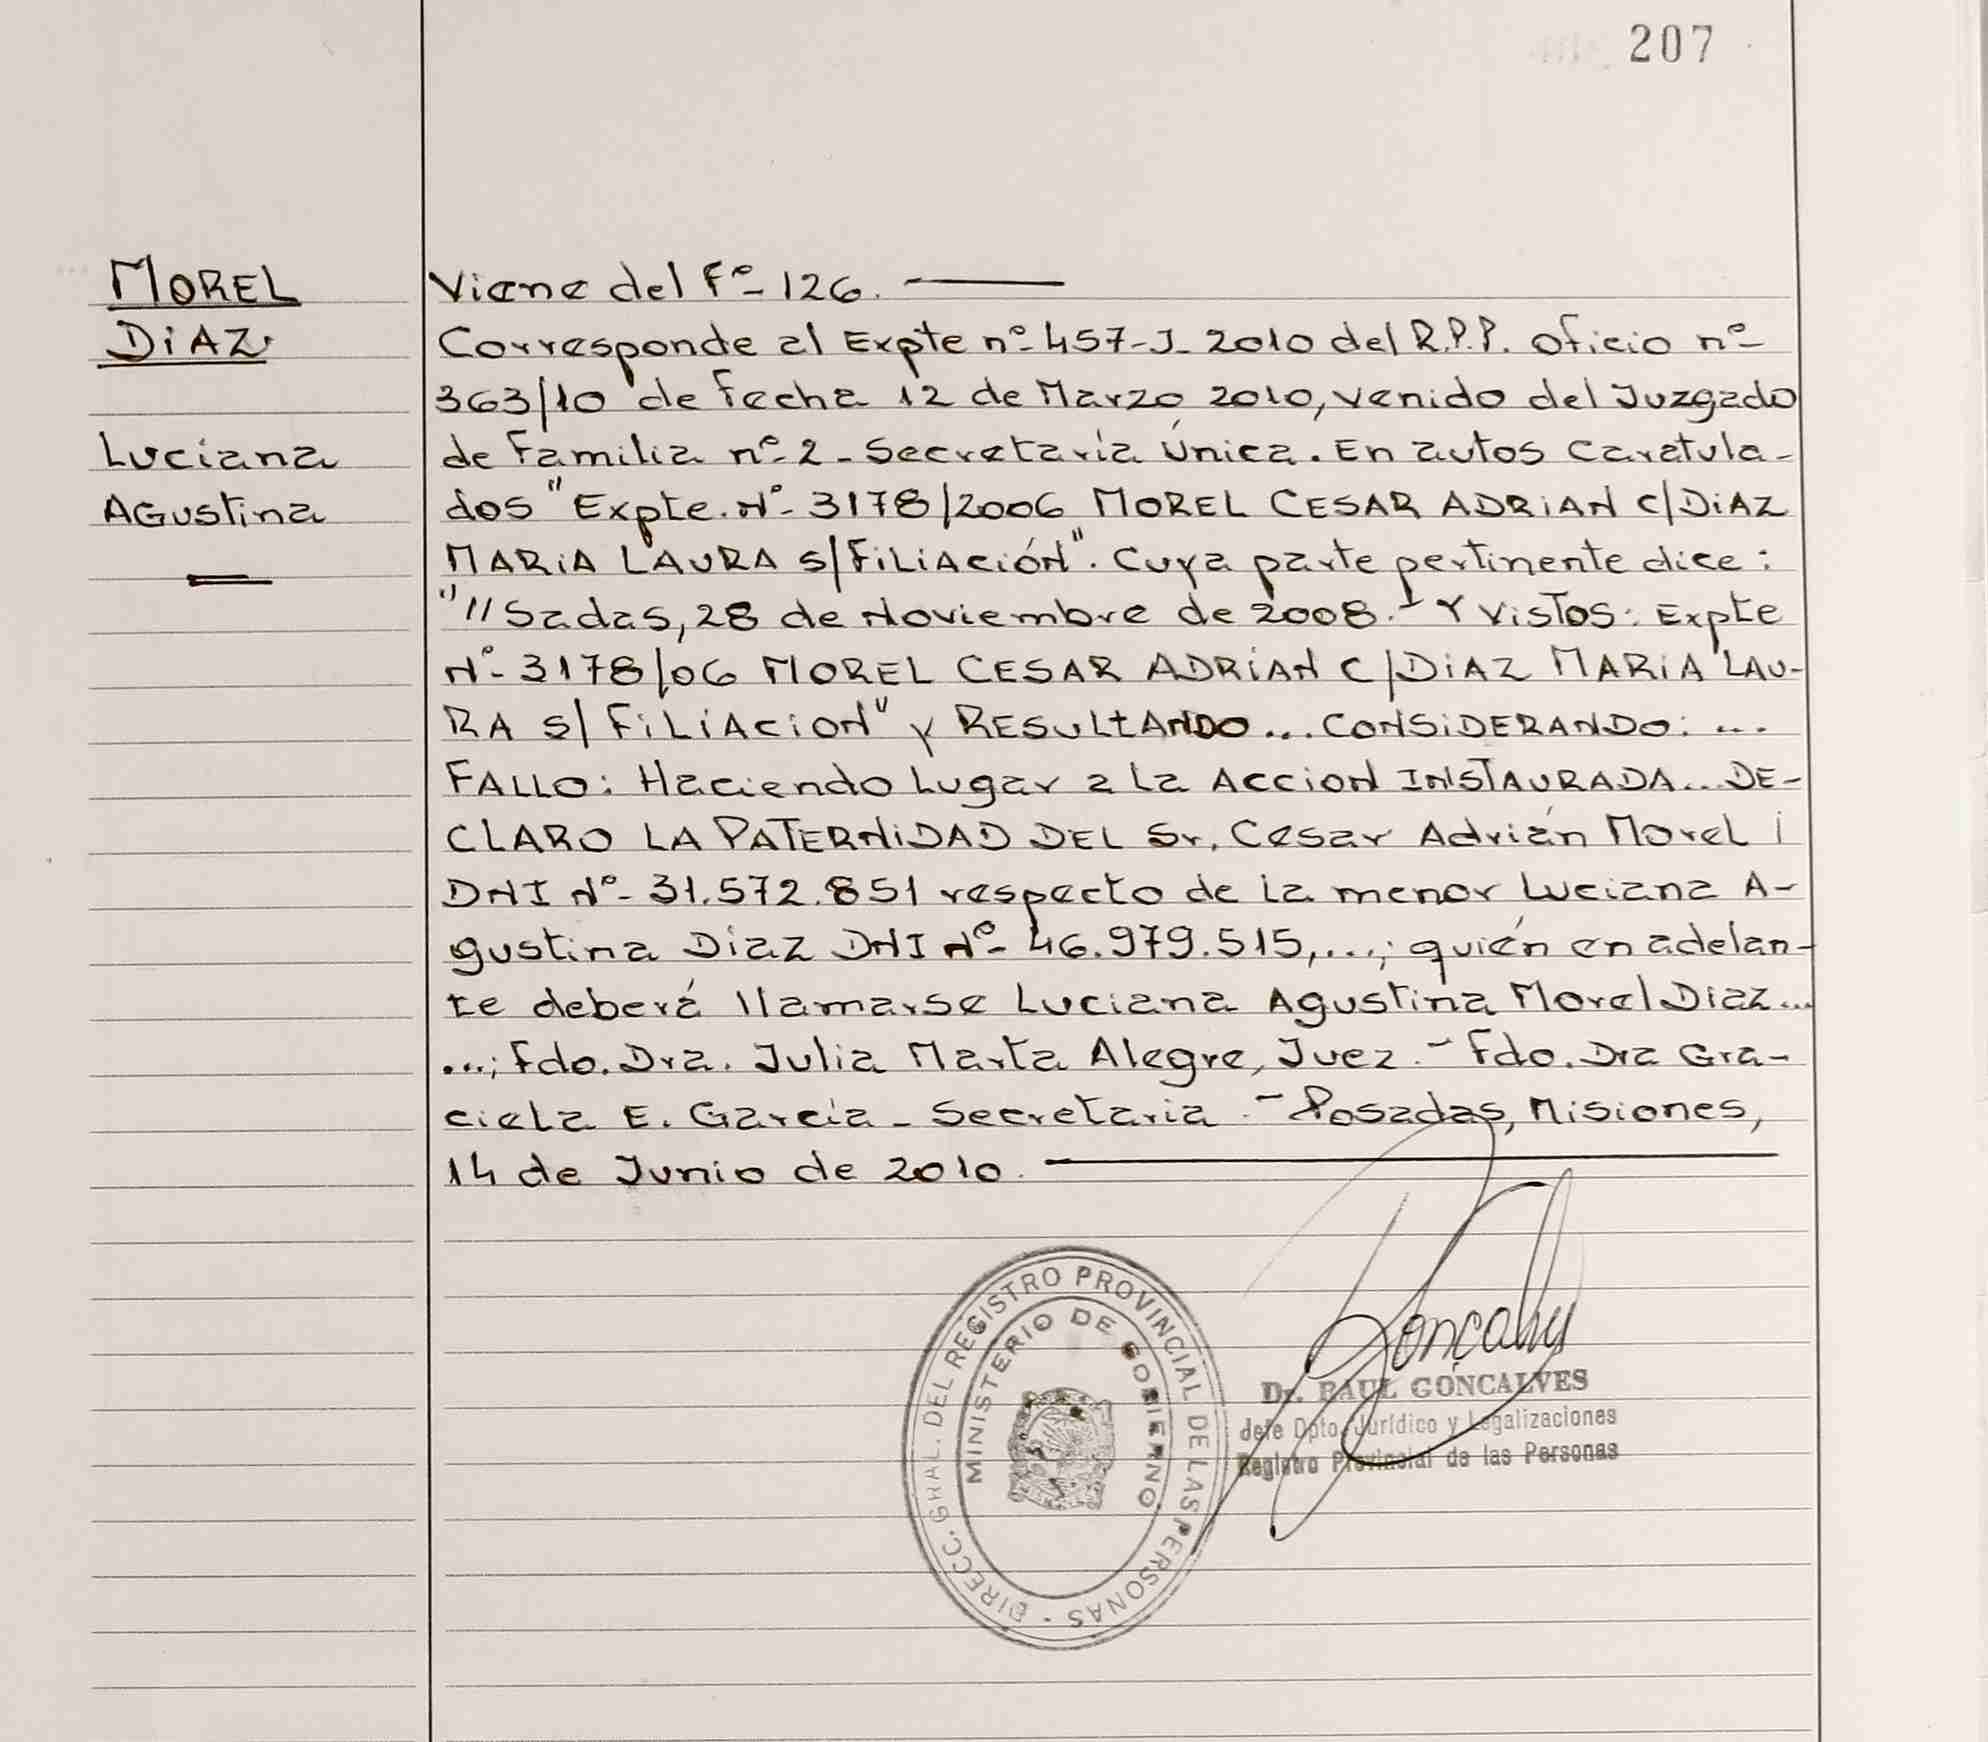 207
MOREL
DiAZ
Luciana
Agustina
Viene del Fº 126.
Corresponde al Expte nº 457-J-2010 del R.P.P. Oficio nº
363/10 de fecha 12 de Marzo 2010, venido del Juzgado
de Familia nº 2 - Secretaría Única. En autos Caratula-
dos "Expte. Nº 3178/2006 MOREL CESAR ADRiAN C/DiAZ
MARiA LAURA S/FiLiACiÓN". Cuya parte pertinente dice:
"//Sadas, 28 de Noviembre de 2008.- Y ViSTOS: Expte
Nº 3178/06 MOREL CESAR ADRiAN C/DiAZ MARiA LAU-
RA S/ FiLiACiON" y RESULTANDO... CONSiDERANDO: ...
FALLO: Haciendo Lugar a La ACCiON INSTAURADA... DE-
CLARO LA PATERNiDAD DEL Sr. Cesar Adrián Morel
DNI Nº 31.572.851 respecto de la menor Luciana A-
gustina Diaz DNI Nº 46.979.515,...; quién en adelan-
te deberá llamarse Luciana Agustina Morel Diaz...
...; Fdo. Dra. Julia Marta Alegre, Juez.- Fdo. Dra Gra-
ciela E. García - Secretaria.- Posadas, Misiones,
14 de Junio de 2010.
DIRECC. GRAL. DEL REGISTRO PROVINCIAL DE LAS PERSONAS -
MINISTERIO DE GOBIERNO
Gonçalves
Dr. RAUL GONCALVES
Jefe Dpto. Jurídico y Legalizaciones
Registro Provincial de las Personas